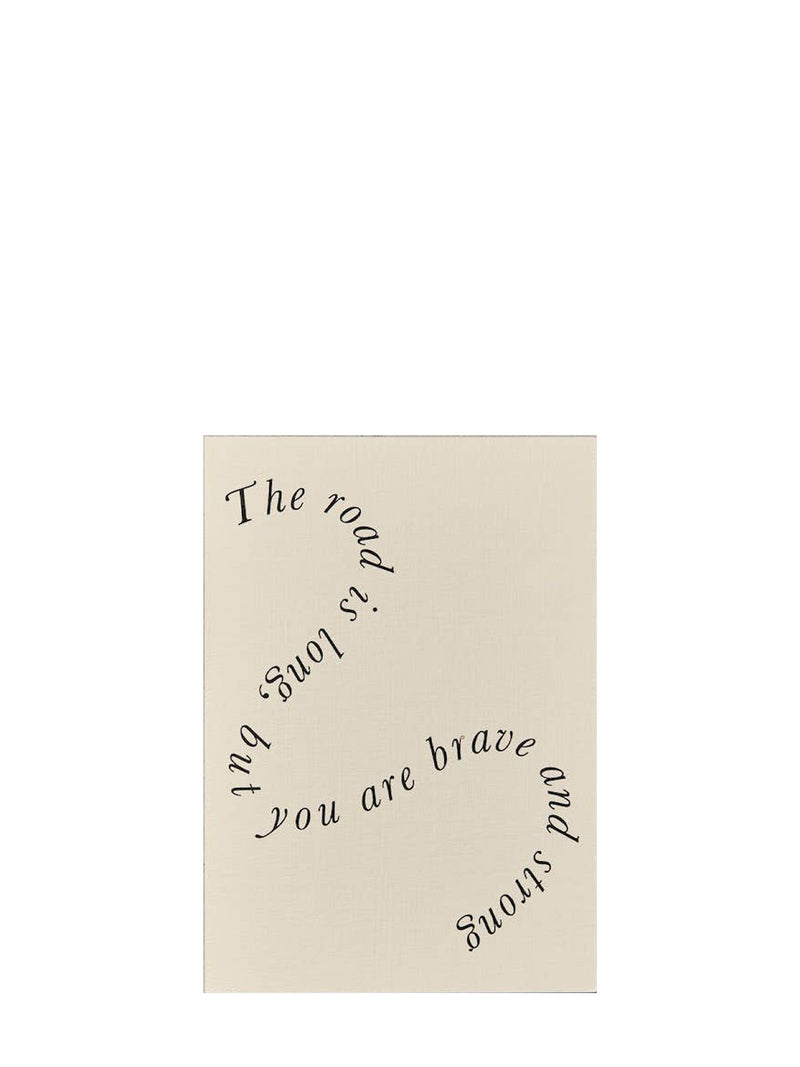 The road is long, but you are brave and strong